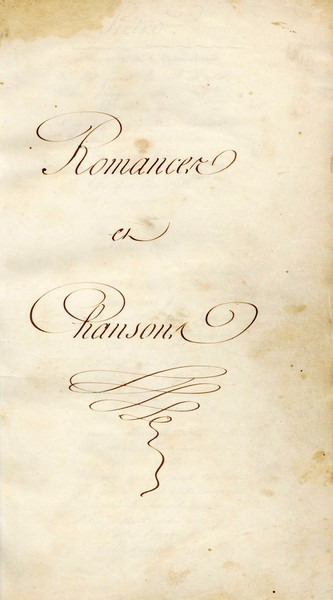 Romances
et
Chansons